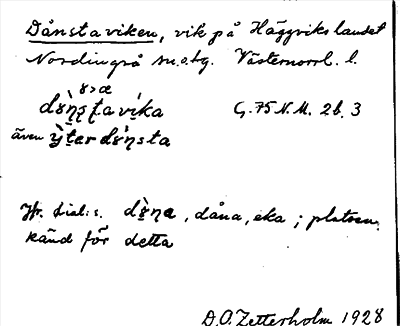 Dånstaviken, vik på Häggvikslandet
Nordingrå sn. o. tg. Västernorrl. l.
ɤ>œ
dɤ̀n̥ʂʈaviḱa G.75 N.M. 2b. 3
även ỳ̈ʈerdɤństa
Jfr. dial:s. dɤ̀na, dåna, eka; platsen
känd för detta
D.O. Zetterholm 1928